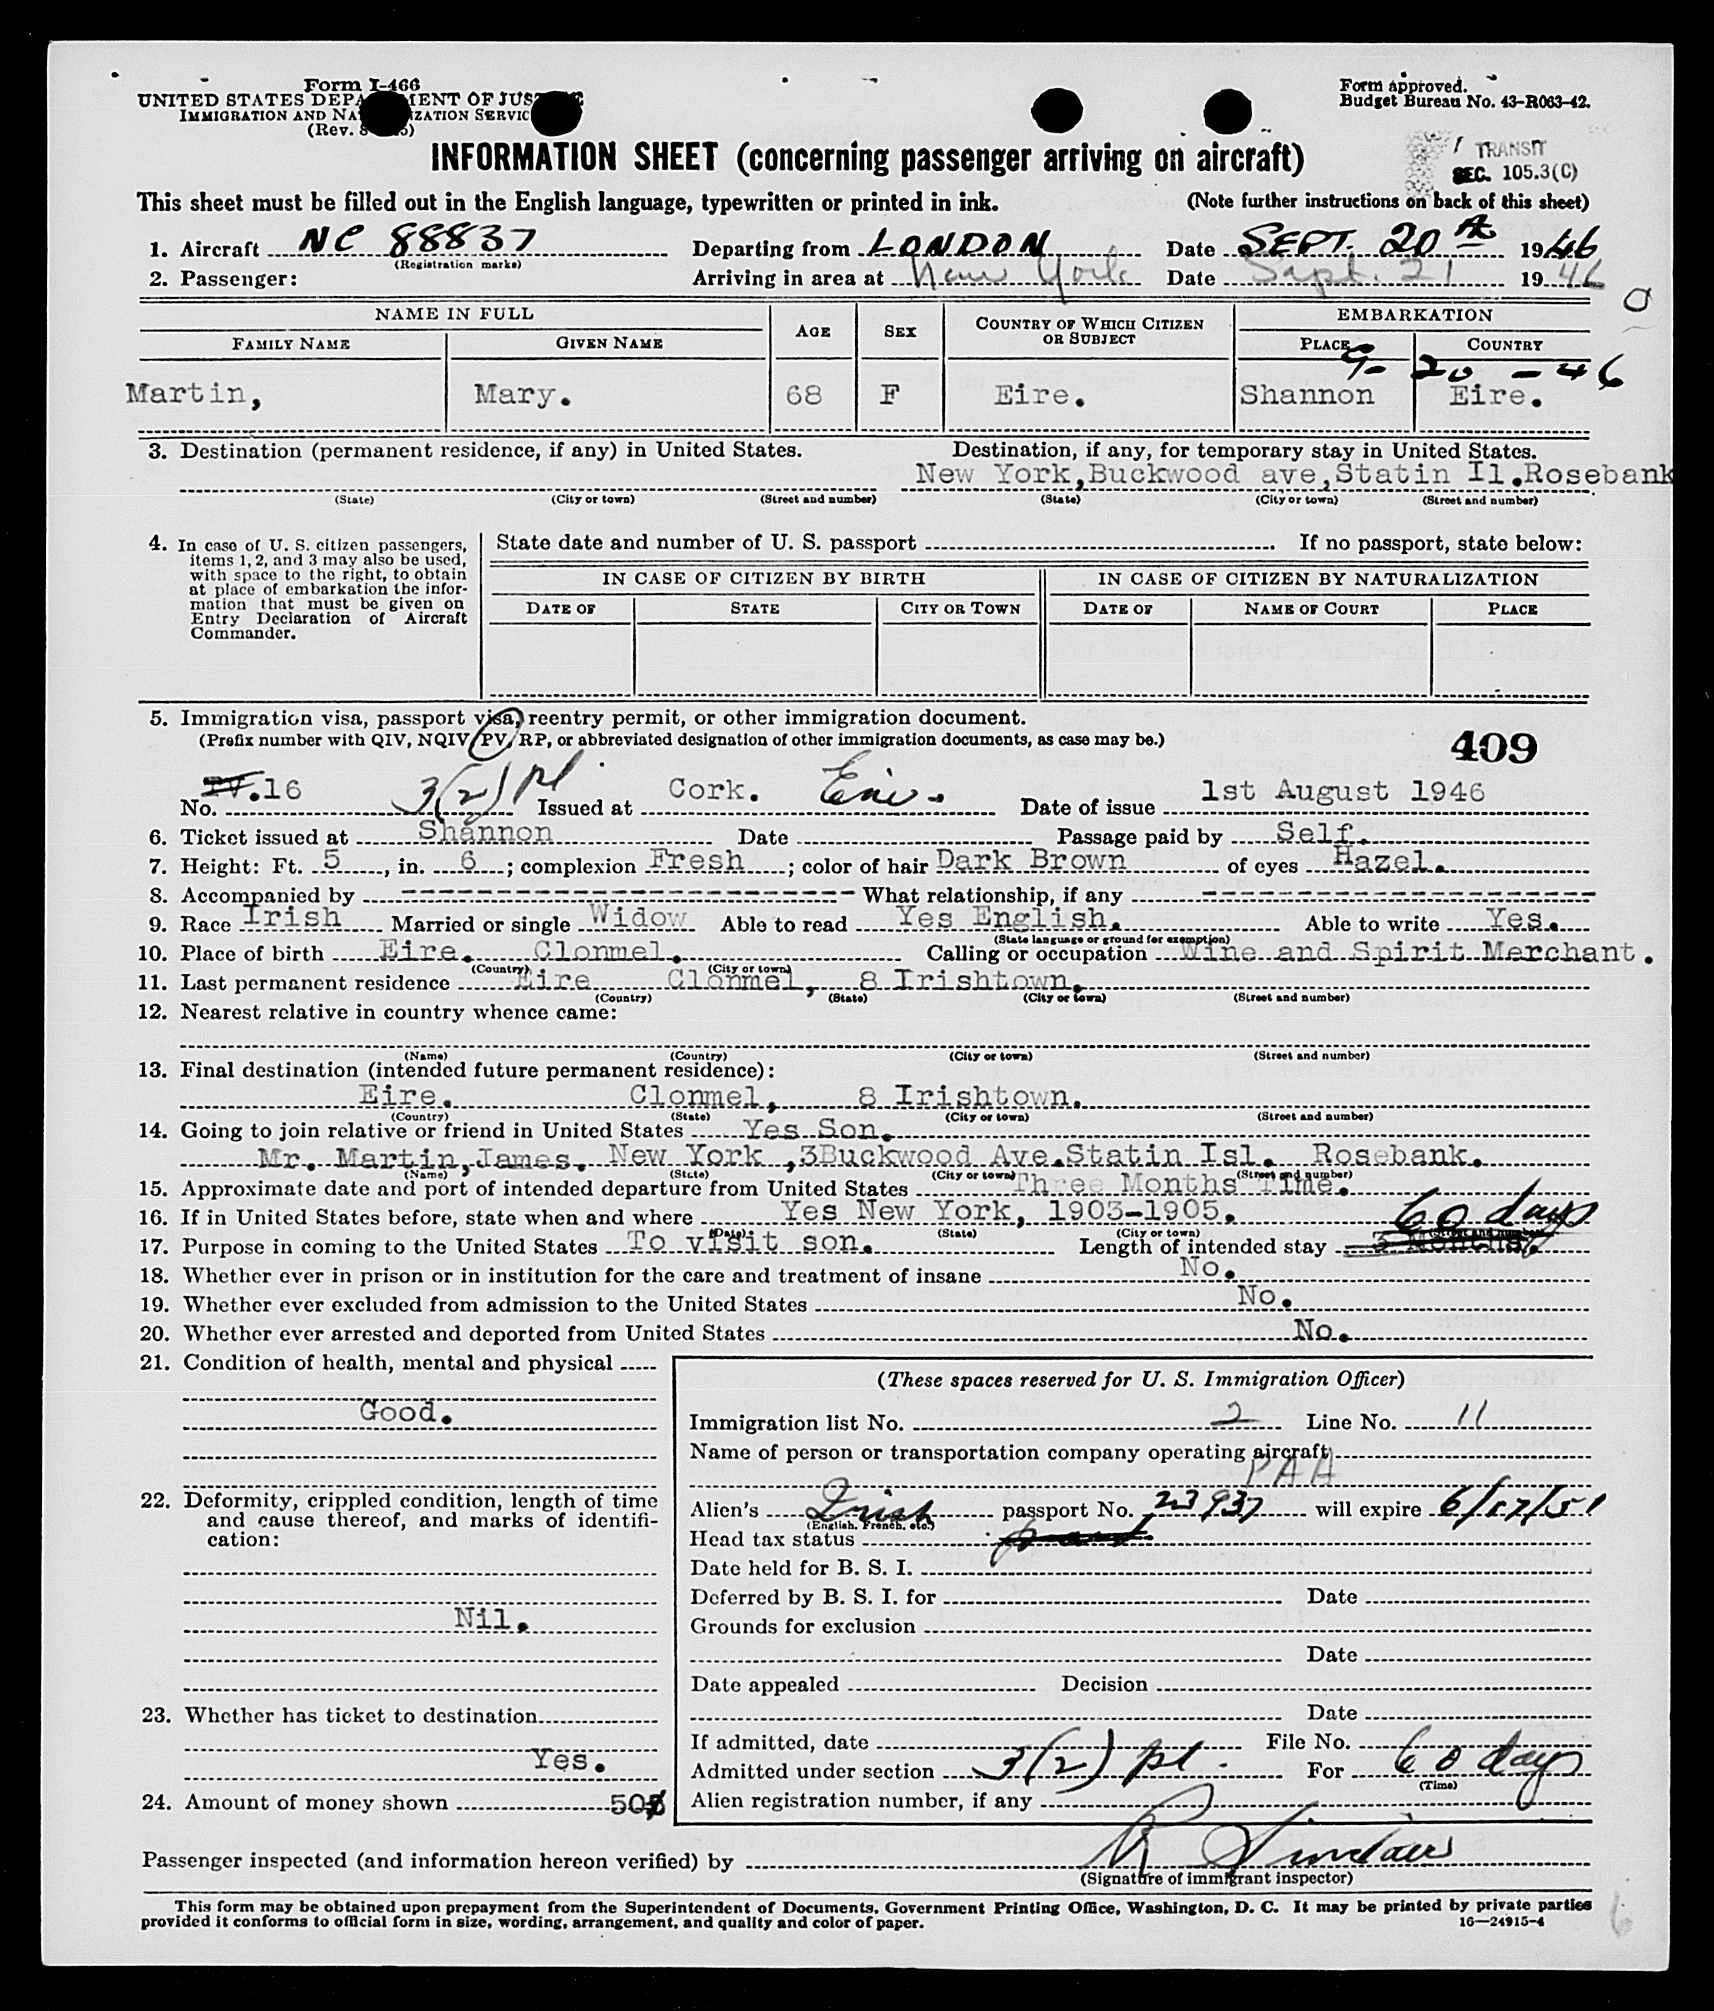 Form I-466
UNITED STATES DEPARTMENT OF JUSTICE
IMMIGRATION AND NATURALIZATION SERVICE
(Rev.
Form approved.
Budget Bureau No. 43-R063-42.
INFORMATION SHEET (concerning passenger arriving on aircraft)
TRANSIT
SEC. 105.3(C)
This sheet must be filled out in the English language, typewritten or printed in ink. (Note further instructions on back of this sheet)
1. Aircraft NC 88837 Departing from LONDON Date SEPT. 20th 1946
(Registration marks)
2. Passenger: Arriving in area at New York Date Sept. 21 1946
NAME IN FULL AGE SEX COUNTRY OF WHICH CITIZEN OR SUBJECT EMBARKATION
FAMILY NAME GIVEN NAME PLACE COUNTRY
9-20-46
Martin, Mary. 68 F Eire. Shannon Eire.
3. Destination (permanent residence, if any) in United States. Destination, if any, for temporary stay in United States.
New York,Buckwood ave,Statin Il.Rosebank
(State) (City or town) (Street and number) (State) (City or town) (Street and number)
4. In case of U. S. citizen passengers, items 1, 2, and 3 may also be used, with space to the right, to obtain at place of embarkation the information that must be given on Entry Declaration of Aircraft Commander.
State date and number of U. S. passport . If no passport, state below:
IN CASE OF CITIZEN BY BIRTH IN CASE OF CITIZEN BY NATURALIZATION
DATE OF STATE CITY OR TOWN DATE OF NAME OF COURT PLACE
5. Immigration visa, passport visa, reentry permit, or other immigration document.
(Prefix number with QIV, NQIV, PV, RP, or abbreviated designation of other immigration documents, as case may be.)
409
No. PV.16 3(2) pl Issued at Cork. Eire. Date of issue 1st August 1946
6. Ticket issued at Shannon Date Passage paid by Self.
7. Height: Ft. 5, in. 6; complexion Fresh; color of hair Dark Brown of eyes Hazel.
8. Accompanied by What relationship, if any
9. Race Irish Married or single Widow Able to read Yes English. Able to write Yes.
(State language or ground for exemption)
10. Place of birth Eire. Clonmel. Calling or occupation Wine and Spirit Merchant.
(Country) (City or town)
11. Last permanent residence Eire Clonmel, 8 Irishtown.
(Country) (State) (City or town) (Street and number)
12. Nearest relative in country whence came:
(Name) (Country) (City or town) (Street and number)
13. Final destination (intended future permanent residence):
Eire. Clonmel, 8 Irishtown.
(Country) (State) (City or town) (Street and number)
14. Going to join relative or friend in United States Yes Son.
Mr. Martin,James. New York ,3Buckwood Ave.Statin Isl. Rosebank.
(Name) (State) (City or town) (Street and number)
15. Approximate date and port of intended departure from United States Three Months Time.
16. If in United States before, state when and where Yes New York, 1903-1905.
(Date) (State) (City or town) (Street and number)
60 days
17. Purpose in coming to the United States To visit son. Length of intended stay 3 Months.
18. Whether ever in prison or in institution for the care and treatment of insane No.
19. Whether ever excluded from admission to the United States No.
20. Whether ever arrested and deported from United States No.
21. Condition of health, mental and physical
Good.
22. Deformity, crippled condition, length of time and cause thereof, and marks of identification:
Nil.
23. Whether has ticket to destination
Yes.
24. Amount of money shown 50
(These spaces reserved for U. S. Immigration Officer)
Immigration list No. 2 Line No. 11
Name of person or transportation company operating aircraft
PAA
Alien's Irish passport No. 23937 will expire 6/17/51
(English, French, etc.)
Head tax status
Date held for B. S. I.
Deferred by B. S. I. for Date
Grounds for exclusion
Date
Date appealed Decision
Date
If admitted, date File No.
Admitted under section 3(2) pl. For 60 days
(Time)
Alien registration number, if any
Passenger inspected (and information hereon verified) by R Sinclair
(Signature of immigrant inspector)
This form may be obtained upon prepayment from the Superintendent of Documents, Government Printing Office, Washington, D. C. It may be printed by private parties
provided it conforms to official form in size, wording, arrangement, and quality and color of paper. 16—24915-4